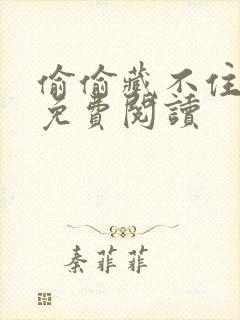 偷偷藏不住
免費閱讀
秦菲菲